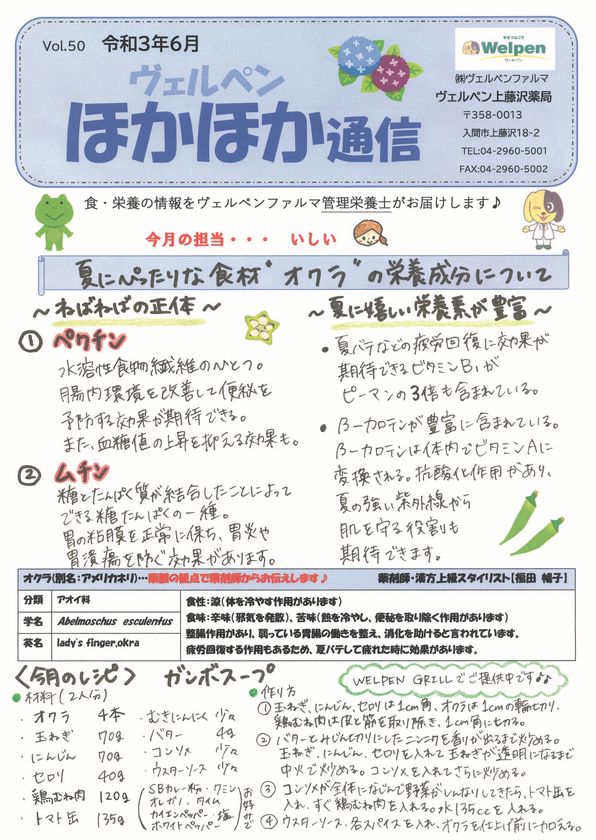 Vol.50 令和3年6月
手をつなごう
Welpen
ヴェルペン
ヴェルペン
ほかほか通信
㈱ヴェルペンファルマ
ヴェルペン上藤沢薬局
〒358-0013
入間市上藤沢18-2
TEL:04-2960-5001
FAX:04-2960-5002
食・栄養の情報をヴェルペンファルマ管理栄養士がお届けします♪
今月の担当・・・ いしい
夏にぴったりな食材"オクラ"の栄養成分について
～ねばねばの正体～
① ペクチン
水溶性食物繊維のひとつ。
腸内環境を改善して便秘を
予防する効果が期待できる。
また、血糖値の上昇を抑える効果も。
② ムチン
糖とたんぱく質が結合したことによって
できる糖たんぱくの一種。
胃の粘膜を正常に保ち、胃炎や
胃潰瘍を防ぐ効果があります。
～夏に嬉しい栄養素が豊富～
・夏バテなどの疲労回復に効果が
期待できるビタミンB₁が
ピーマンの3倍も含まれている。
・β-カロテンが豊富に含まれている。
β-カロテンは体内でビタミンAに
変換される。抗酸化作用があり、
夏の強い紫外線から
肌を守る役割も
期待できます。
オクラ(別名:アメリカネリ)…薬膳の観点で薬剤師からお伝えします♪ 薬剤師・漢方上級スタイリスト【福田 幡子】
分類 アオイ科
学名 Abelmoschus esculentus
英名 lady's finger,okra
食性:涼(体を冷やす作用があります)
食味:辛味(邪気を発散)、苦味(熱を冷やし、便秘を取り除く作用があります)
整腸作用があり、弱っている胃腸の働きを整え、消化を助けると言われています。
疲労回復する作用もあるため、夏バテして疲れた時に効果があります。
〈今月のレシピ〉 ガンボスープ
WELPEN GRILLでご提供中です♪♪
●材料(2人分)
・オクラ 4本
・玉ねぎ 70g
・にんじん 70g
・セロリ 40g
・鶏むね肉 120g
・トマト缶 135g
・むきにんにく 少々
・バター 4g
・コンソメ 少々
・ウスターソース 少々
(SBカレー粉・クミン
オレガノ、タイム
カイエンペッパー・塩
ホワイトペッパー) お好みで
●作り方
① 玉ねぎ、にんじん、セロリは1cm角、オクラは1cmの輪切り、
鶏むね肉は皮と筋を取り除き、1cm角に切る。
② バターとみじん切りにしたニンニクを香りが出るまで炒める。
玉ねぎ、にんじん、セロリを入れて玉ねぎが透明になるまで
中火で炒める。コンソメを入れてさらに炒める。
③ コンソメが全体になじんで野菜がしんなりしてきたら、トマト缶を
入れ、すぐ鶏むね肉を入れる。水135ccを入れる。
④ ウスターソース、各スパイスを入れ、オクラを仕上げ前に加える。